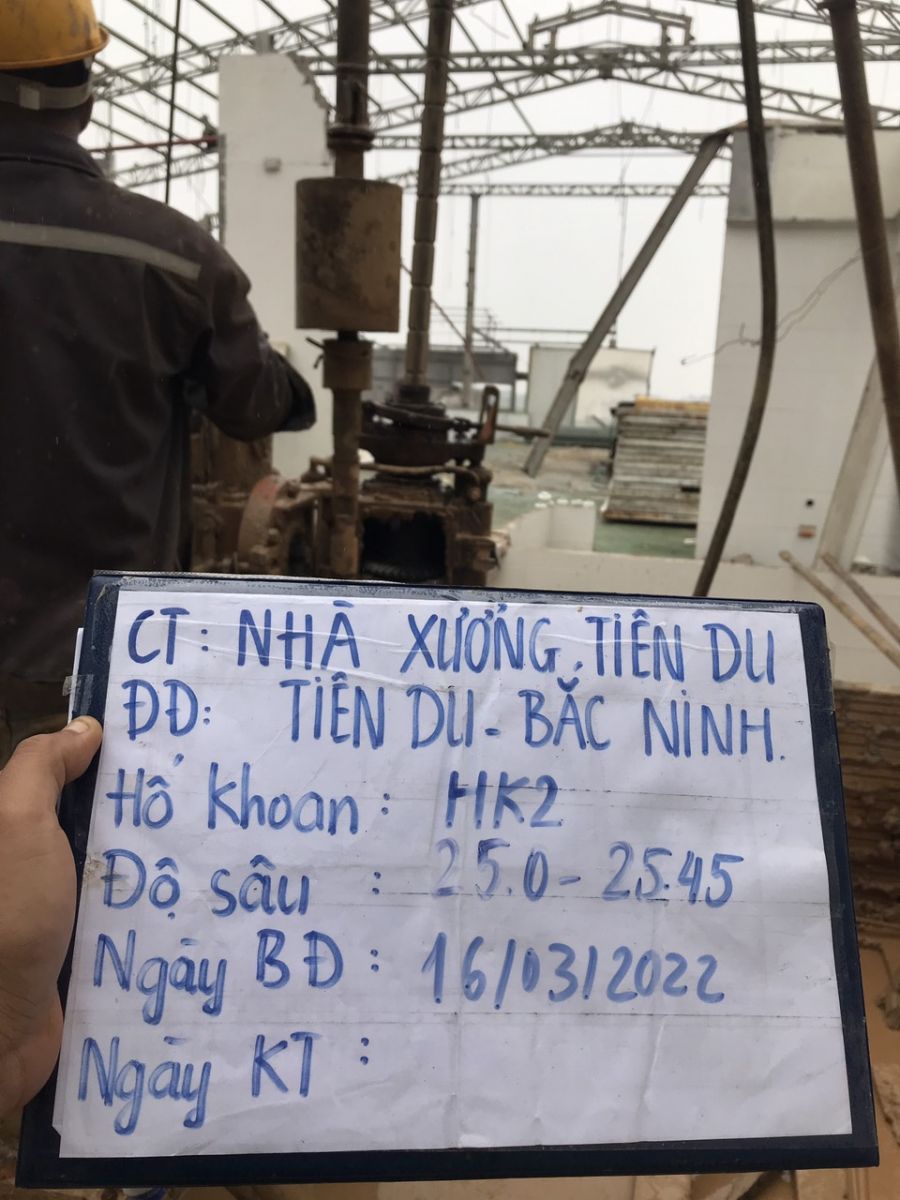 CT: NHÀ XƯỞNG TIÊN DU
ĐĐ: TIÊN DU - BẮC NINH.
Hố khoan: HK2
Độ sâu : 25.0 - 25.45
Ngày BĐ : 16/03/2022
Ngày KT :